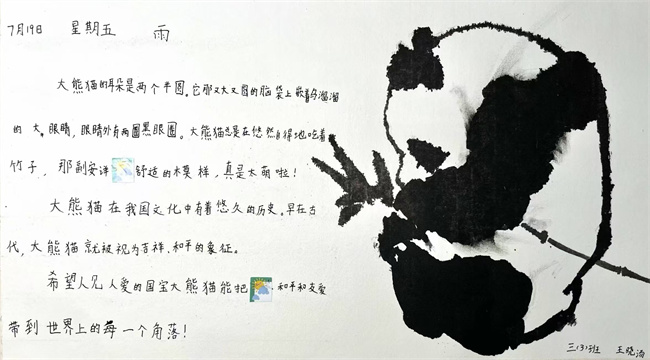 7月19日 星期五 雨
大熊猫的耳朵是两个半圆。它那又大又圆的脑袋上嵌着圆溜溜
的大眼睛，眼睛外有两圈黑眼圈。大熊猫总是在悠然自得地吃着
竹子，那副安详舒适的模样，真是太萌啦！
大熊猫在我国文化中有着悠久的历史。早在古
代，大熊猫就被视为吉祥、和平的象征。
希望人见人爱的国宝大熊猫能把和平和友爱
带到世界上的每一个角落！
三（3）班 王晓